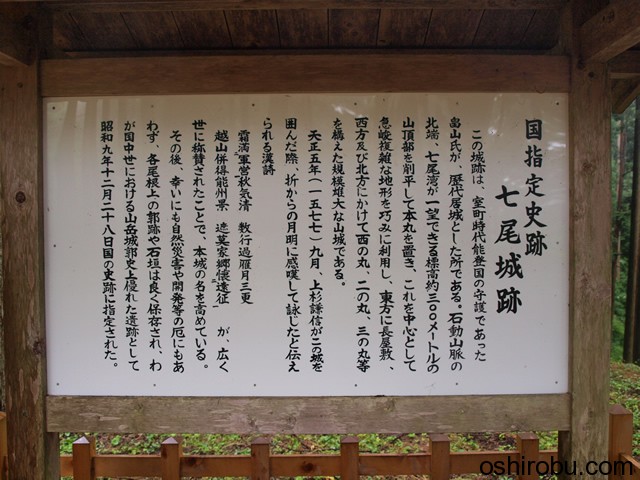 国指定史跡
七尾城跡
この城跡は、室町時代能登国の守護であった
畠山氏が、歴代居城とした所である。石動山脈の
北端、七尾湾が一望できる標高約三〇〇メートルの
山頂部を削平して本丸を置き、これを中心として
急峻複雑な地形を巧みに利用し、東方に長屋敷、
西方及び北方にかけて西の丸、二の丸、三の丸等
を構えた規模雄大な山城である。
天正五年(一五七七)九月、上杉謙信がこの城を
囲んだ際、折からの月明に感嘆して詠じたと伝え
られる漢詩
霜満軍営秋気清 数行過雁月三更
越山併得能州景 遮莫家郷懐遠征 が、広く
世に称賛されたことで、本城の名を高めている。
その後、幸いにも自然災害や開発等の厄にもあ
わず、各尾根上の郭跡や石垣は良く保存され、わ
が国中世における山岳城郭史上優れた遺跡として
昭和九年十二月二十八日国の史跡に指定された。
oshirobu.com